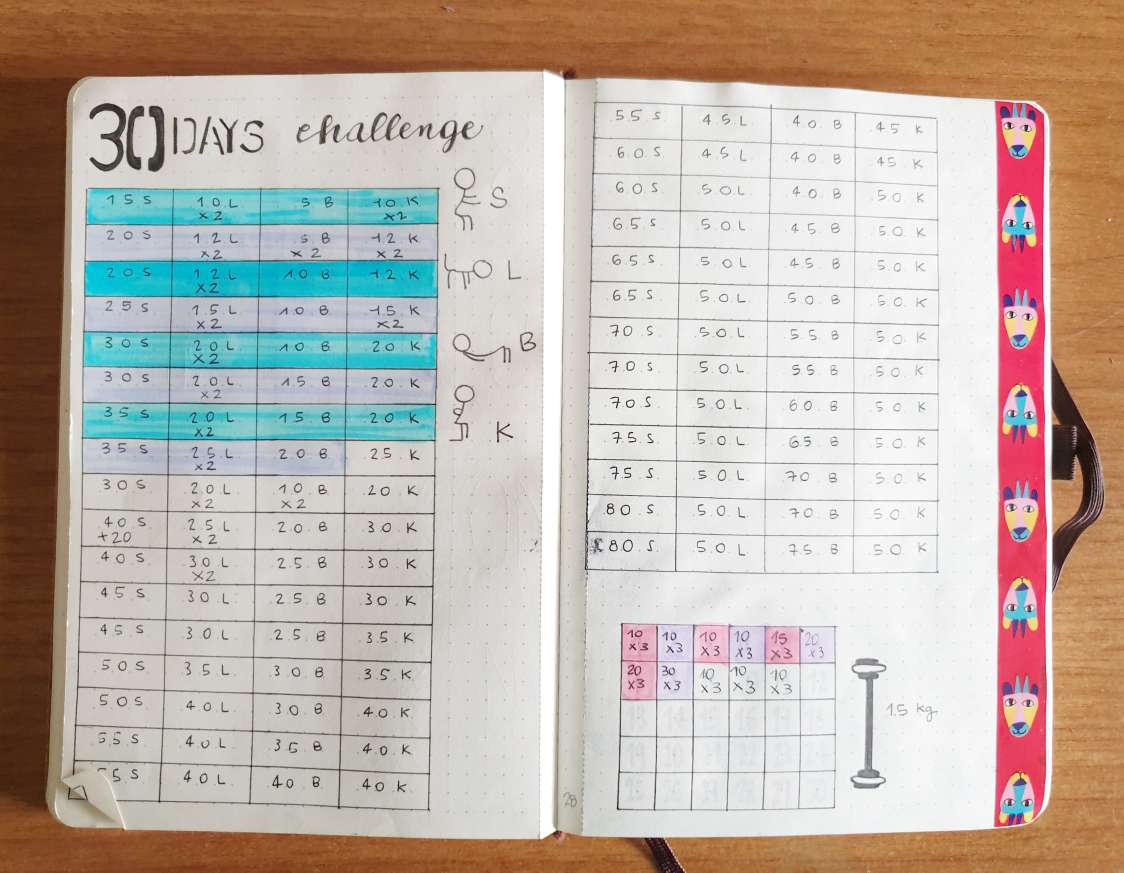 30 DAYS challenge
15 S 10 L 5 B 10 K
x2 x2
20 S 12 L 5 B 12 K
x2 x2 x2
20 S 12 L 10 B 12 K
x2
25 S 15 L 10 B 15 K
x2 x2
30 S 20 L 10 B 20 K
x2
30 S 20 L 15 B 20 K
x2
35 S 20 L 15 B 20 K
x2
35 S 25 L 20 B 25 K
x2
30 S 20 L 10 B 20 K
x2 x2
40 S 25 L 20 B 30 K
+20 x2
40 S 30 L 25 B 30 K
x2
45 S 30 L 25 B 30 K
45 S 30 L 25 B 35 K
50 S 35 L 30 B 35 K
50 S 40 L 30 B 40 K
55 S 40 L 35 B 40 K
55 S 40 L 40 B 40 K
S
L
B
K
55 S 45 L 40 B 45 K
60 S 45 L 40 B 45 K
60 S 50 L 40 B 50 K
65 S 50 L 45 B 50 K
65 S 50 L 45 B 50 K
65 S 50 L 50 B 50 K
70 S 50 L 55 B 50 K
70 S 50 L 55 B 50 K
70 S 50 L 60 B 50 K
75 S 50 L 65 B 50 K
75 S 50 L 70 B 50 K
80 S 50 L 70 B 50 K
80 S 50 L 75 B 50 K
10 10 10 10 15 20
x3 x3 x3 x3 x3 x3
20 30 10 10 10
x3 x3 x3 x3 x3
1.5 kg
28